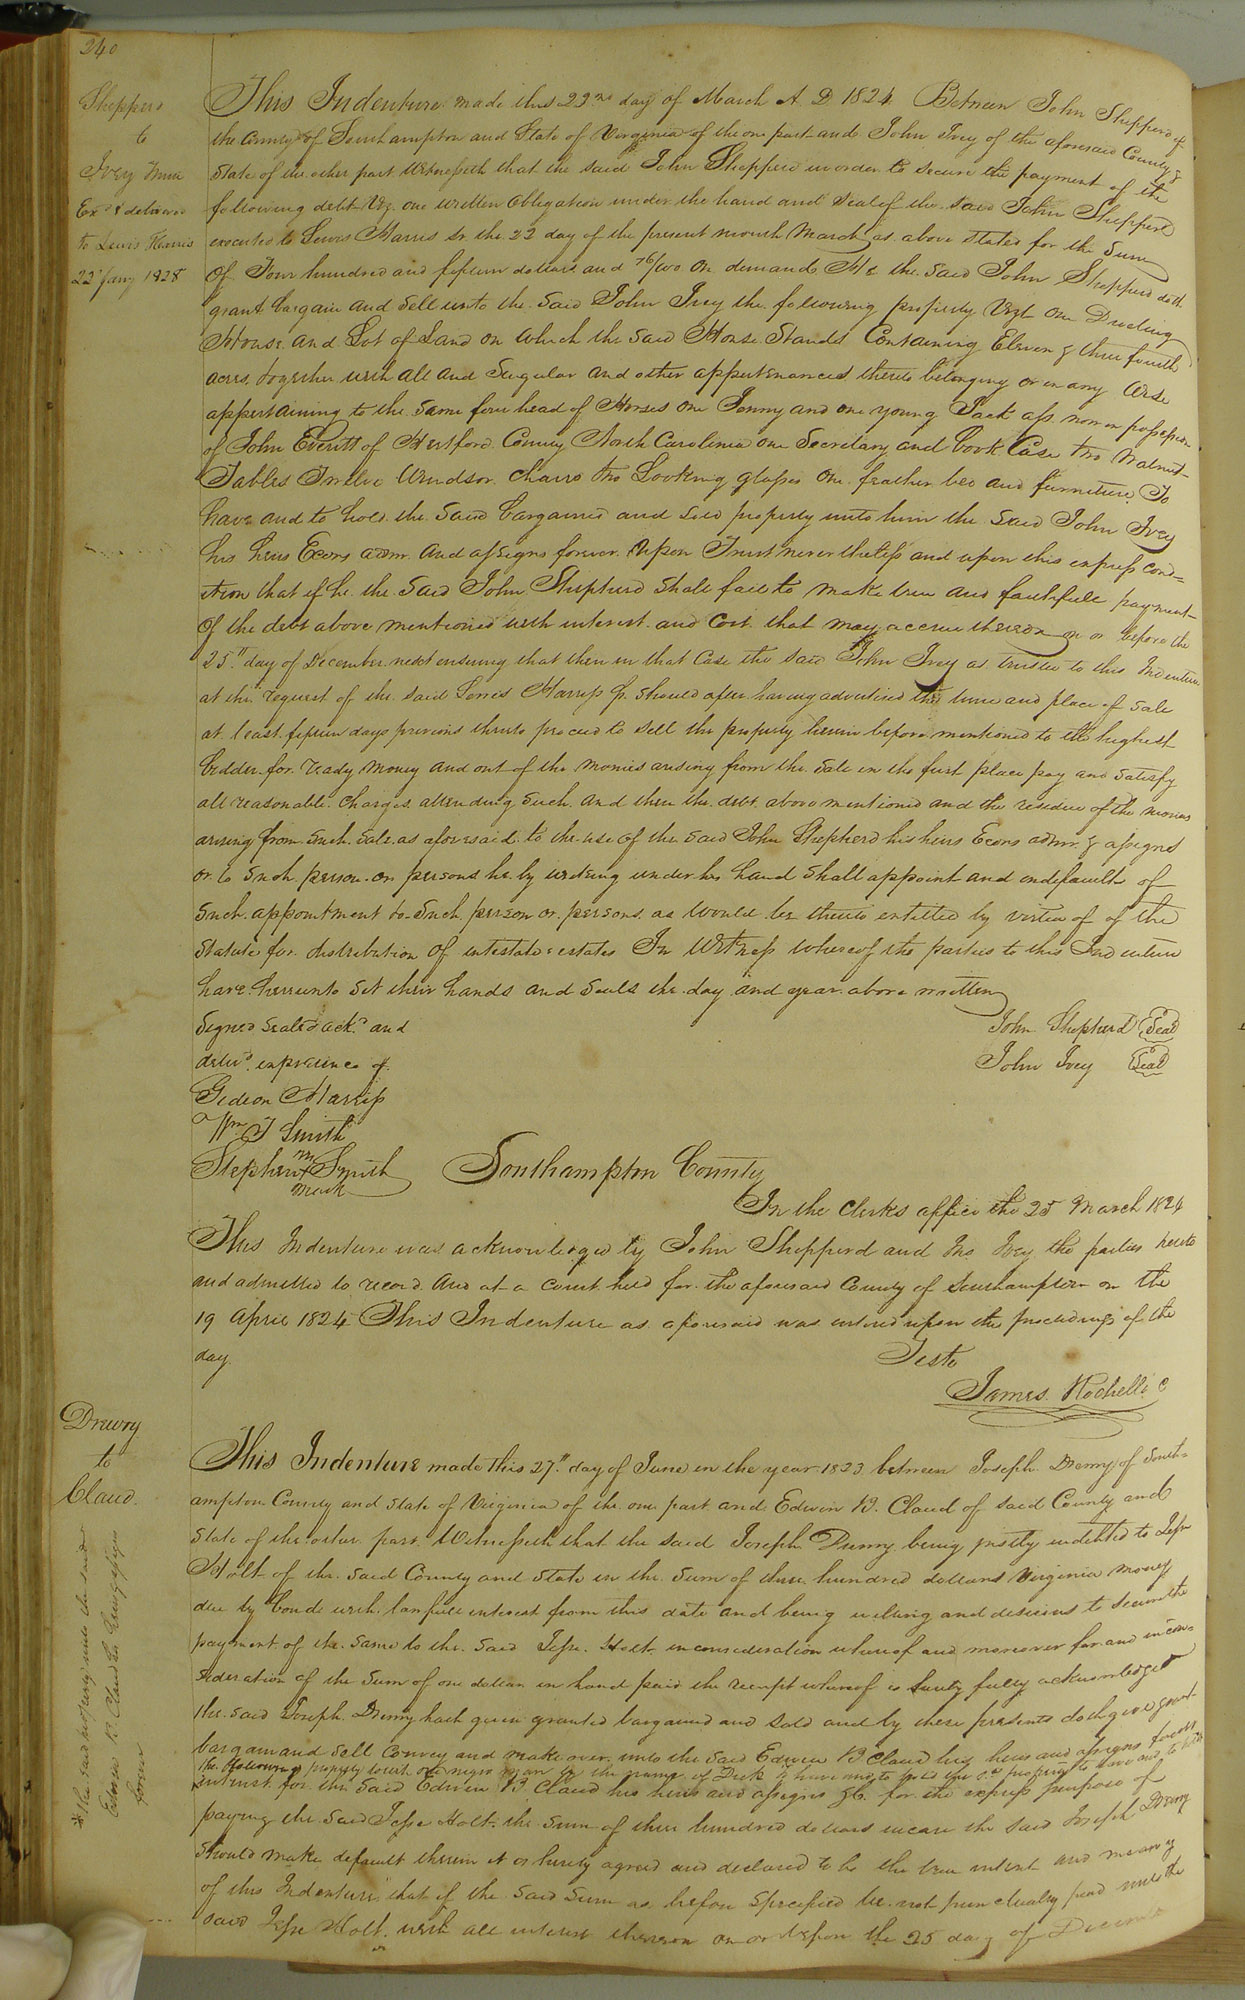 240
Shepperd
to
Ivey Trus
Exd & delivered
to Lewis Harris
22d Jany 1828
This Indenture made this 22nd day of March A. D 1824 Between John Shepperd of
the County of Southampton and State of Virginia of the one part and John Ivey of the aforesaid County &
State of the other part Witnesseth that the said John Shepperd in order to secure the payment of the
following debt Viz. one written obligation under the hand and seal of the said John Shepperd
executed to Lewis Harris Sr. the 22 day of the present month March as above stated for the Sum
Of Four hundred and fifteen dollars and 76/100 on demand He the said John Shepperd doth
grant bargain and sell unto the said John Ivey the following property Vizt One Dweling
House and Lot of Land on which the said House Stands Containing Eleven & three fourth
acres, together with all and Singular and other appertenances thereto belonging or in any wise
appertaining to the same four head of Horses One Jenny and one young Jack ass now in possession
of John Everitt of Hertford County North Carolina one Secretary and book Case two walnut
Tables Twelve Windsor chairs two Looking glasses One feather bed and furniture To
have and to hold the said bargained and sold property unto him the said John Ivey
his heirs Exors admr. and assigns forever. Upon Trust never theless and upon this express cond=
ition that if he the said John Shepherd shall fail to make true and faithfull payment
Of the debt above mentioned with interest and Cost that may accrue thereon on or before the
25th day of December next ensuing that then in that Case the said John Ivey as trustee to this Indenture
at the request of the said Lewis Harriss Sr. should after having advertised the time and place of sale
at least fifteen days previous thereto proceed to sell the property herein before mentioned to the highest
bidder for ready money and out of the monies arising from the sale in the first place pay and satisfy
all reasonable charges attending such and then the debt above mentioned and the residue of the monies
arising from such sale as aforesaid to the use of the said John Shepherd his heirs Exors admr. & assigns
or to such person or persons he by writing under his hand shall appoint and in default of
such appointment to such person or persons as would be thereto entitled by virtue of of the
Statute for distribution of intestate estates In Witness whereof the parties to this Indenture
have hereunto set their hands and seals the day and year above written
Signed Sealed ackd and
delivd in presence of
John Shepherd Seal
John Ivey Seal
Gedeon Harriss
Wm T Smith
Stephen + Smith
mark
Southampton County
In the clerks office the 25 March 1824
This Indenture was acknowledged by John Shepperd and Jno Ivey the parties hereto
and admitted to record And at a Court held for the aforesaid County of Southampton on the
19 April 1824 This Indenture as aforesaid was entered upon the proceedings of the
day.
Teste
James Rochelle C
Drewry
to
Claud.
This Indenture made this 27th day of June in the year 1823 between Joseph Drewry of South-
ampton County and State of Virginia of the one part and Edwin B. Claud of said County and
State of the other part Witnesseth that the said Joseph Drewry being justly indebted to Jesse
Holt of the said County and State in the Sum of three hundred dollars Virginia money
due by bond with lawfull interest from this date and being willing and desirous to secure the
payment of the same to the said Jesse Holt in consideration whereof and moreover for and in con=
sideration of the Sum of one dollar in hand paid the receipt whereof is hereby fully acknowledged
the said Joseph Drewry hath given granted bargained and sold and by these presents doth give grant
bargain and sell convey and make over unto the said Edwin B Claud his heirs and assigns forever
the following property towit one negro man by the name of Dick to have and to hold the sd property to have and to hold
* in trust for the said Edwin B Claud his heirs and assigns &c. for the express purpose of
paying the said Jesse Holt the sum of three hundred dollars incase the said Joseph Drewry
should make default therein it is hereby agreed and declared to be the true intent and meaning
of this Indenture that if the said sum as before specified be not punctually paid unto the
said Jesse Holt with all interest thereon on or before the 25 day of December
* the said property unto the said
Edwin B. Claud his heirs & assigns
forever